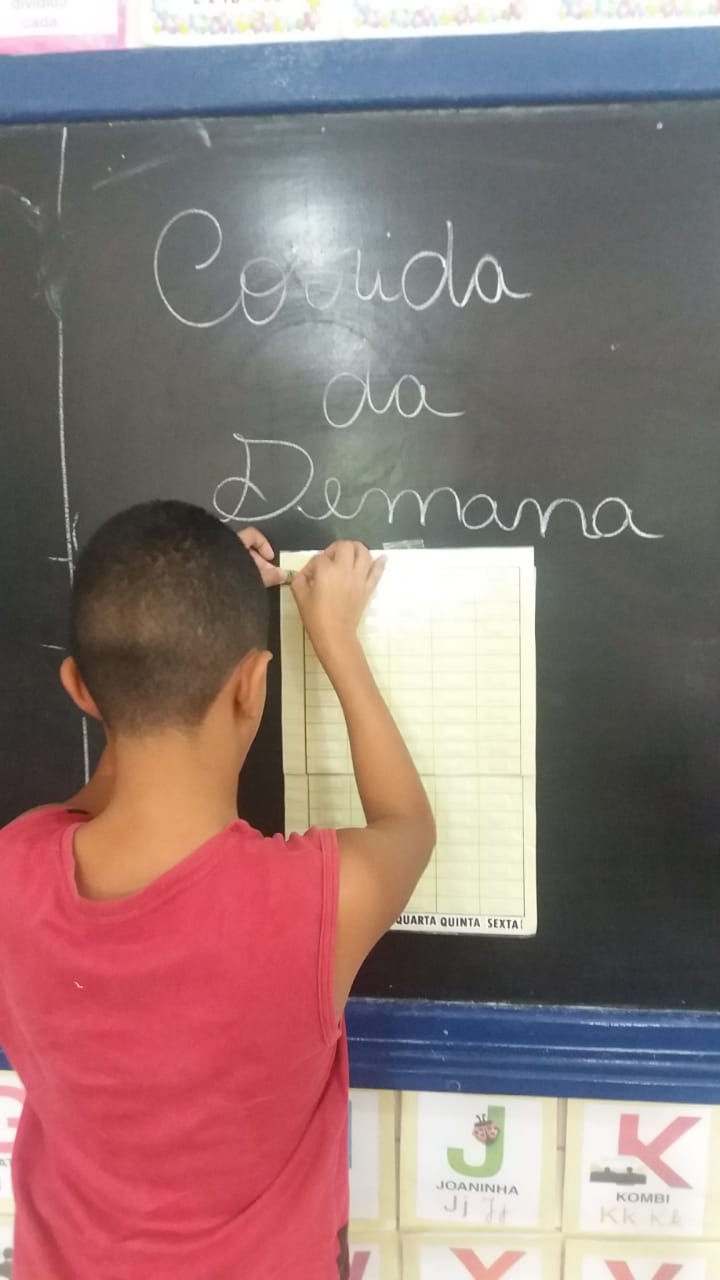 dividida
cada
Corrida
da
Semana
QUARTA QUINTA SEXTA
J
JOANINHA
Jj Jj
K
KOMBI
Kk Kk